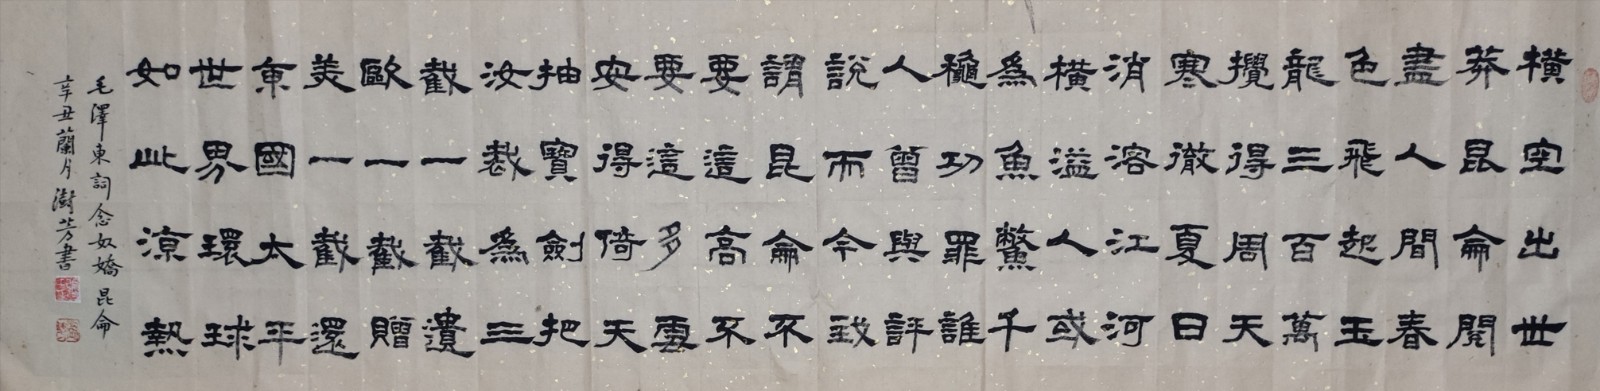 橫空出世
莽昆侖閱
盡人間春
色飛起玉
龍三百萬
攪得周天
寒徹夏日
消溶江河
橫溢人或
爲魚鱉千
穐功罪誰
人曾與評
說而今我
謂昆侖不
要這高不
要這多雪
安得倚天
抽寶劍把
汝裁爲三
截一截遺
歐一截贈
美一截還
東國太平
世界環球
如此涼熱
毛澤東詞念奴嬌昆侖
辛丑蘭月澍芳書